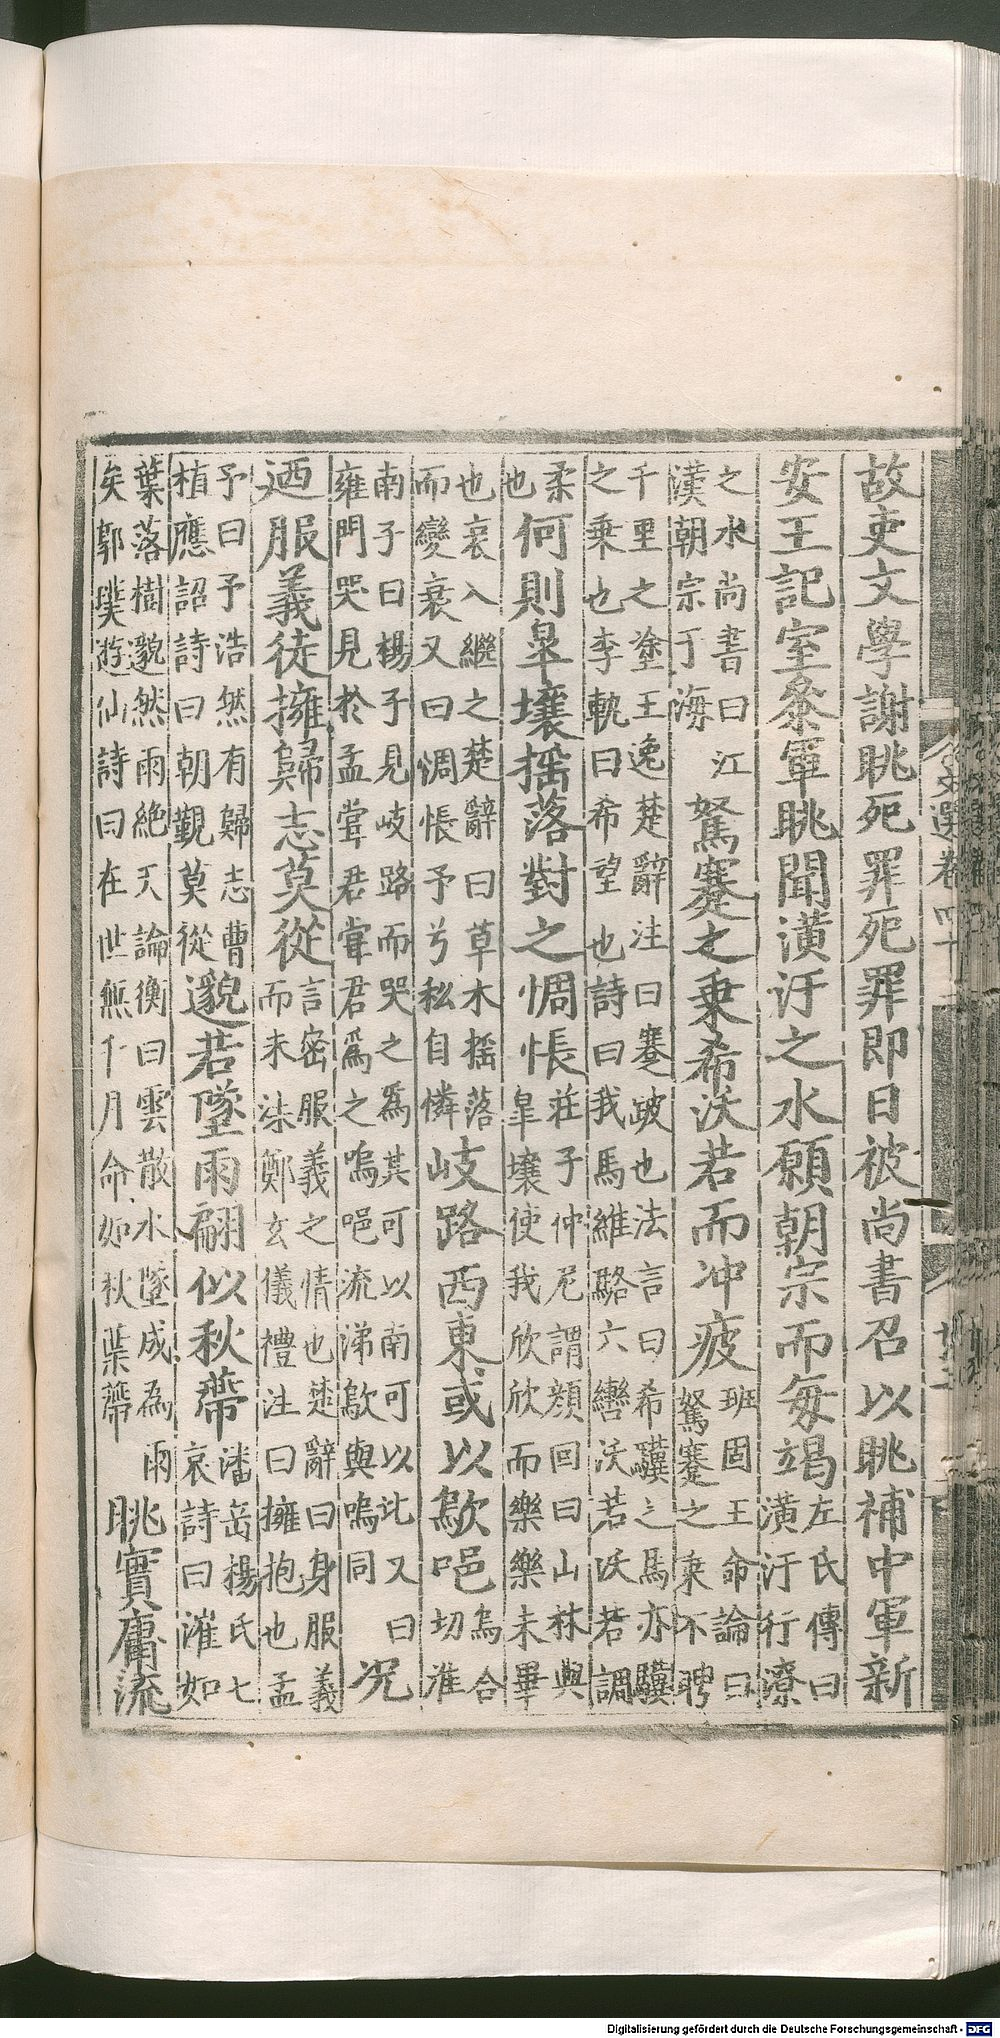 故吏文學謝眺死罪死罪即日被尚書召以眺補中軍新
安王記室叅軍眺聞潢汙之水願朝宗而每竭左氏傳曰潢汙行潦
之水尚書曰江漢朝宗于海駑蹇之乗希沃若而冲疲班固王命論曰駑蹇之乘不騁
千里之塗王逸楚辭注曰蹇跛也法言曰希驥之馬亦驥之乗也李軌曰希望也詩曰我馬維駱六轡沃若沃若調
柔也何則皐壤揺落對之惆悵莊子仲尼謂顔回曰山林與皐壤使我欣欣而樂樂未畢
也哀入繼之楚辭曰草木揺落而變衰又曰惆悵予兮私自憐岐路西東或以歍唈烏合切淮
南子曰楊子見岐路而哭之為其可以南可以北又曰雍門哭見於孟甞君甞君為之嗚唈流涕歍與嗚同况
迺服義徒擁歸志莫從言密服義之情也楚辭曰身服義而未柒鄭玄儀禮注曰擁抱也孟
予曰予浩然有歸志曹植應詔詩曰朝覲莫從邈若墜雨翩似秋蔕潘岳楊氏七哀詩曰漼如
葉落樹邈然雨絶天論衡曰雲散水墜成為雨矣郭璞遊仙詩曰在世無千月命如秋葉蔕眺實庸流
文選卷四十
Digitalisierung gefördert durch die Deutsche Forschungsgemeinschaft - DFG